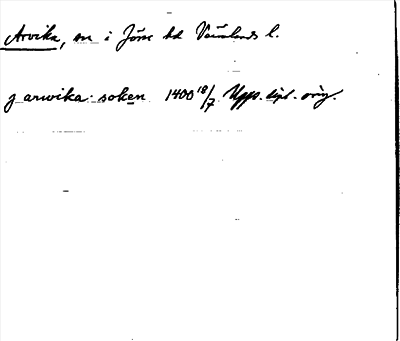 Arvika, sn i Jösse hd Värmlands l.
j arwika soken 1400 18/7 Upps. dipl. orig.